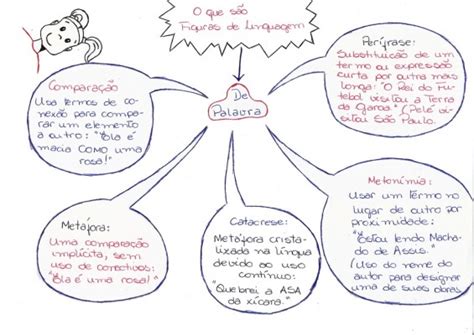 O que são
Figuras de Linguagem
De
Palavra
Comparação
Usa termos de co-
nexão para compa-
rar um elemento
a outro: "Ela é
macia COMO uma
rosa!"
Perífrase:
Substituição de um
termo ou expressão
curta por outra mais
longa: "O Rei do Fu-
tebol visitou a Terra
da Garoa" (Pelé vi-
sitou São Paulo.
Metáfora:
Uma comparação
implícita, sem
uso de conectivos:
"Ela é uma rosa!"
Catacrese:
Metáfora crista-
lizada na língua
devido ao uso
contínuo:
"Quebrei a ASA
da xícara."
Metonímia:
Usar um termo no
lugar de outro por
proximidade:
"Estou lendo Macha-
do de Assis."
(Uso do nome do
autor para designar
uma de suas obras.